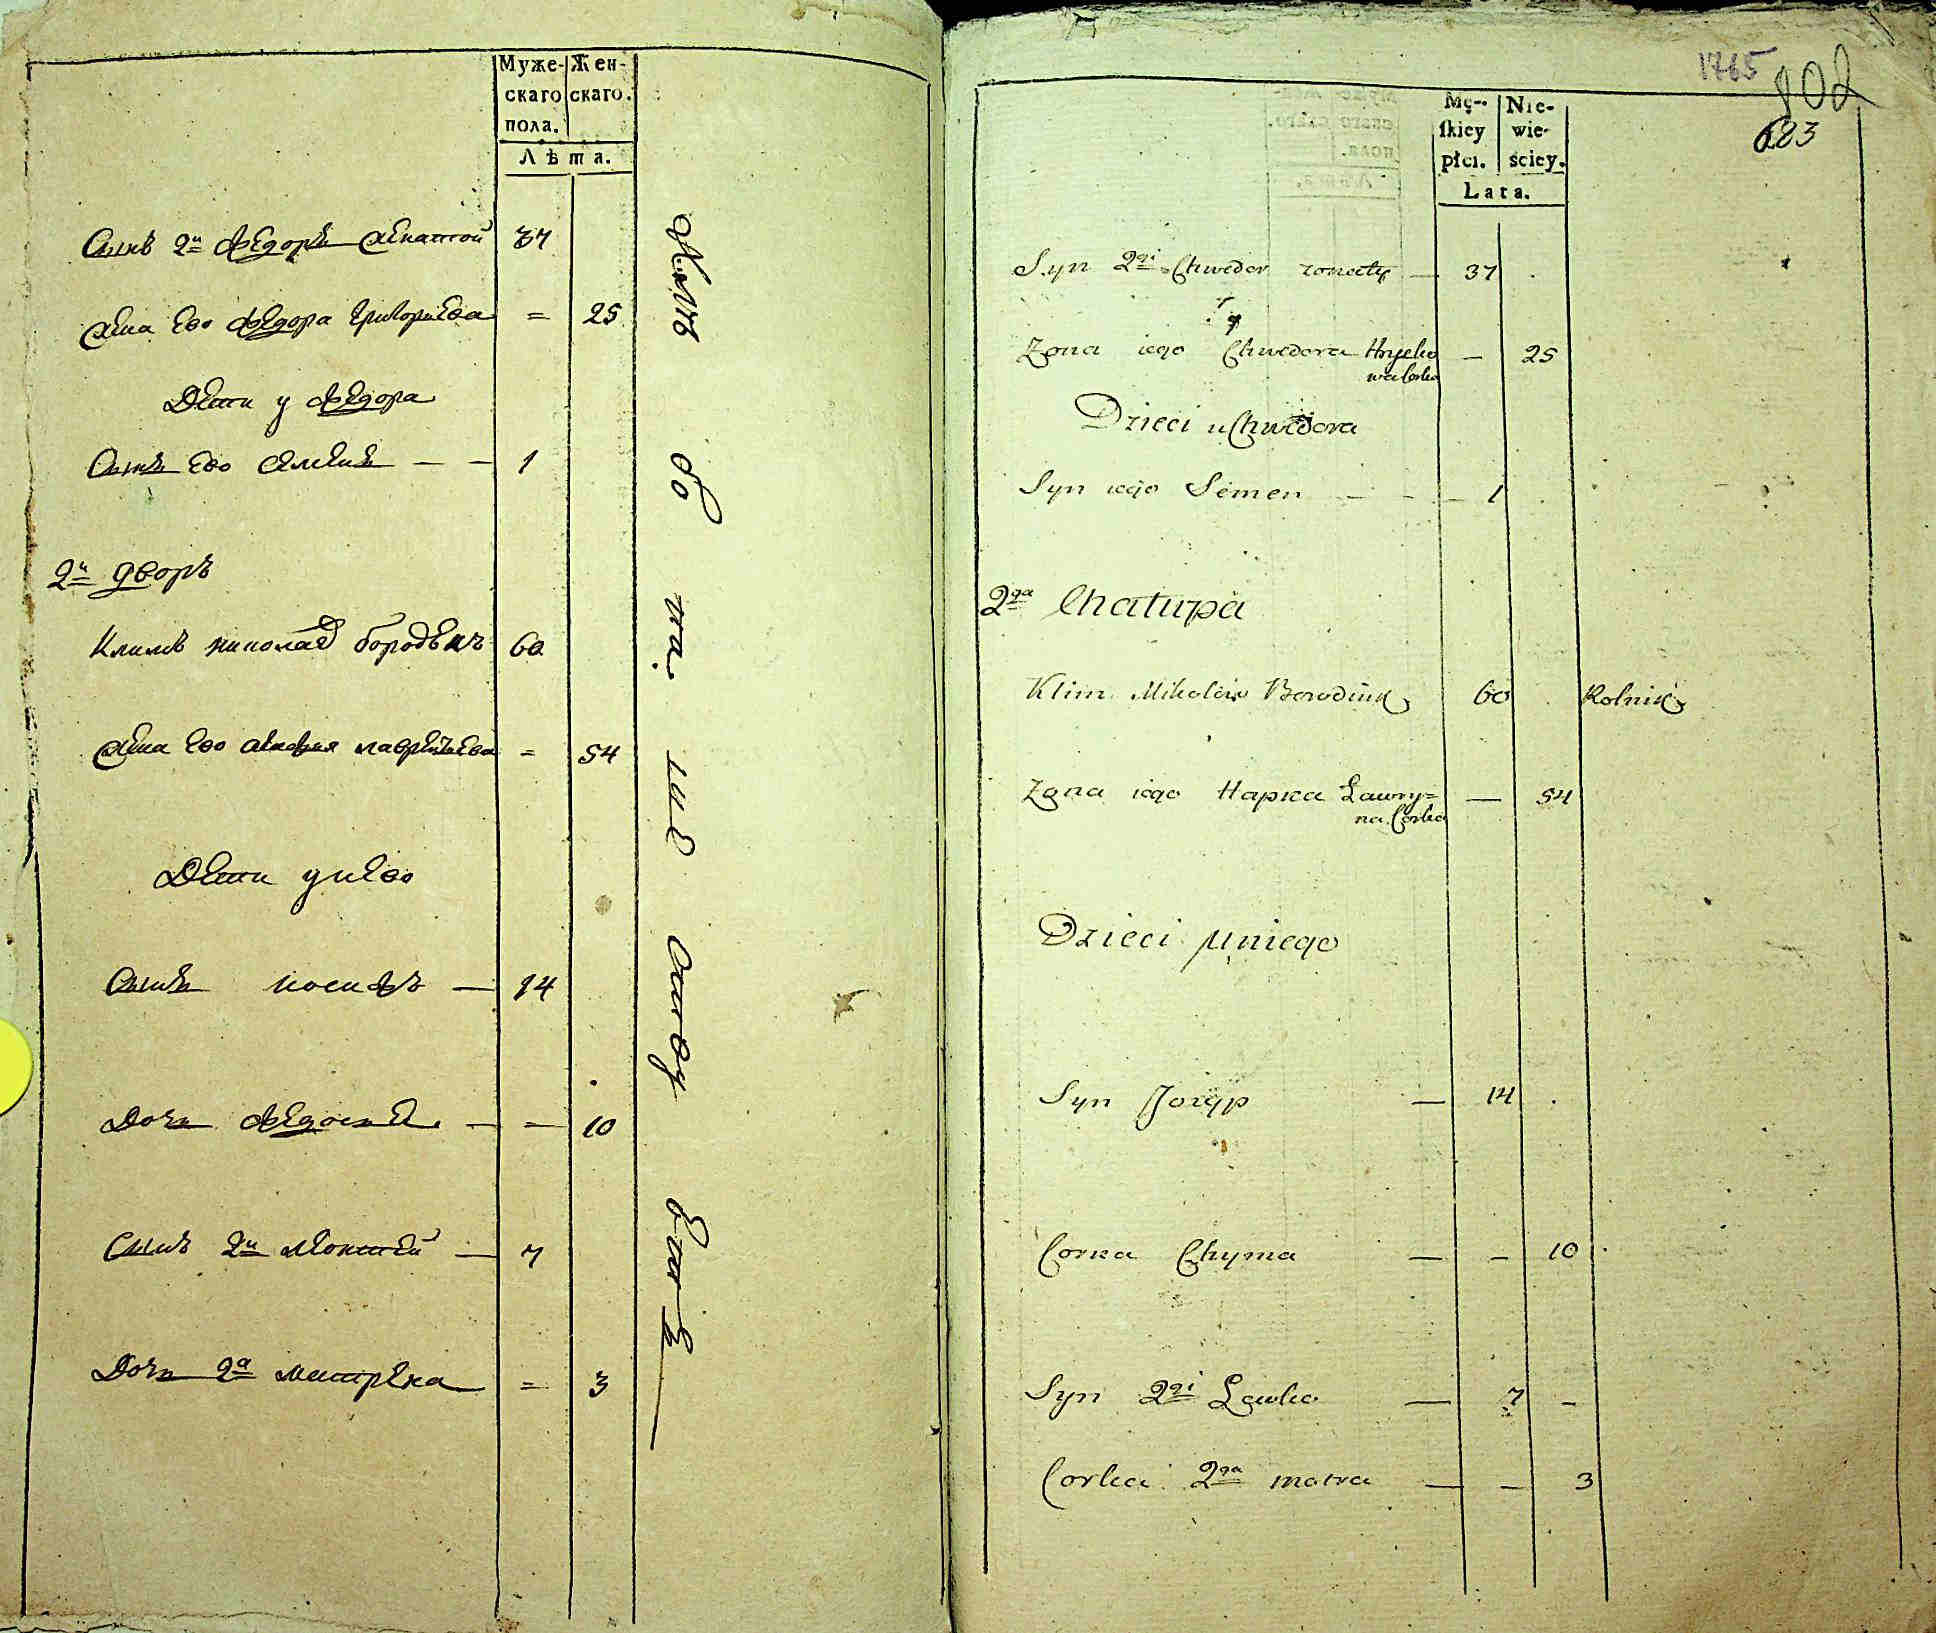 Муже-
скаго
пола.
Жен-
скаго.
Лѣта.
Сынъ 2й Федоръ женатой 37
жена Ево Федора Григорьева = 25
Дети у Федора
Сынъ Ево Семенъ — — 1
2й дворъ
Климъ николаев бородѣюкъ 60
жена Ево лаврентьева = 54
Дети у нево
Сынъ иосифъ — 14
Дочь Федосия — — 10
Сынъ 2й леонтей — 7
Дочь 2а матрена = 3
1765
802
683
Mę-
skiey
płci.
Nie-
wie-
sciey.
Lata.
Syn 2gi Chwedor zonaty — 37
Zona iego Chwedora Hryeko
wa Corka — 25
Dzieci u Chwedora
Syn iego Semen — — — 1
2ga Chałupa
Klim Mikołaiow Borodiuk 60 Rolnik
Zona iego Hapka Lawry=
na Corka — 54
Dzieci u niego
Syn Jozyp — 14
Corka Chyma — — 10
Syn 2gi Lewko — 7 -
Corka 2ga motra — — 3